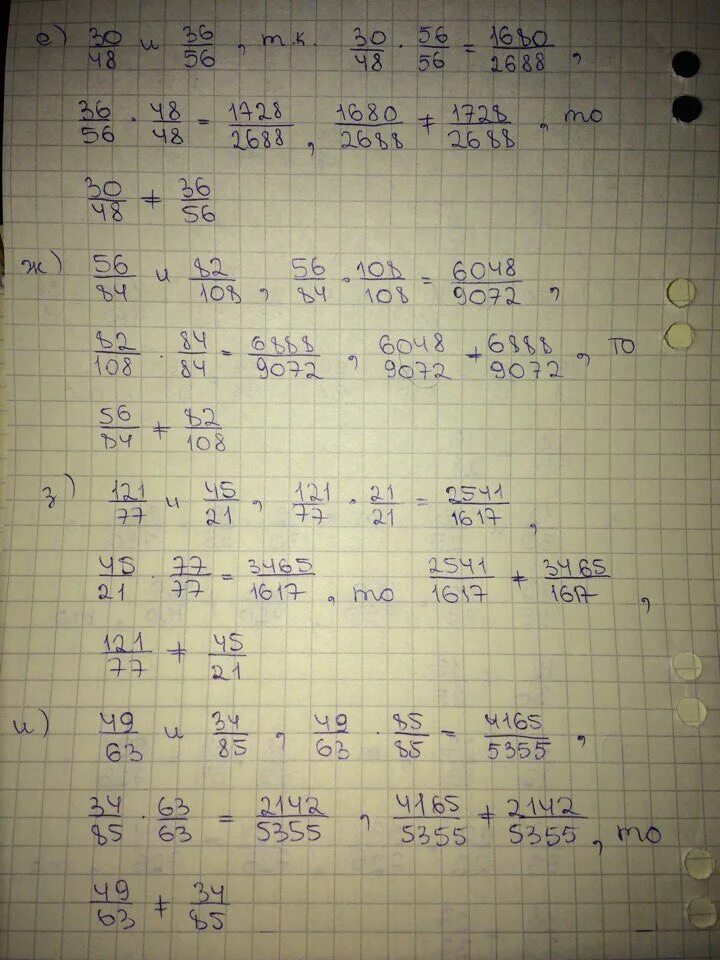 е) 30/48 и 36/56, т.к. 30/48 · 56/56 = 1680/2688,
36/56 · 48/48 = 1728/2688, 1680/2688 ≠ 1728/2688, то
30/48 ≠ 36/56
ж) 56/84 и 82/108, 56/84 · 108/108 = 6048/9072,
82/108 · 84/84 = 6888/9072, 6048/9072 ≠ 6888/9072, то
56/84 ≠ 82/108
з) 121/77 и 45/21, 121/77 · 21/21 = 2541/1617,
45/21 · 77/77 = 3465/1617, то 2541/1617 ≠ 3465/1617,
121/77 ≠ 45/21
и) 49/63 и 34/85, 49/63 · 85/85 = 4165/5355,
34/85 · 63/63 = 2142/5355, 4165/5355 ≠ 2142/5355, то
49/63 ≠ 34/85